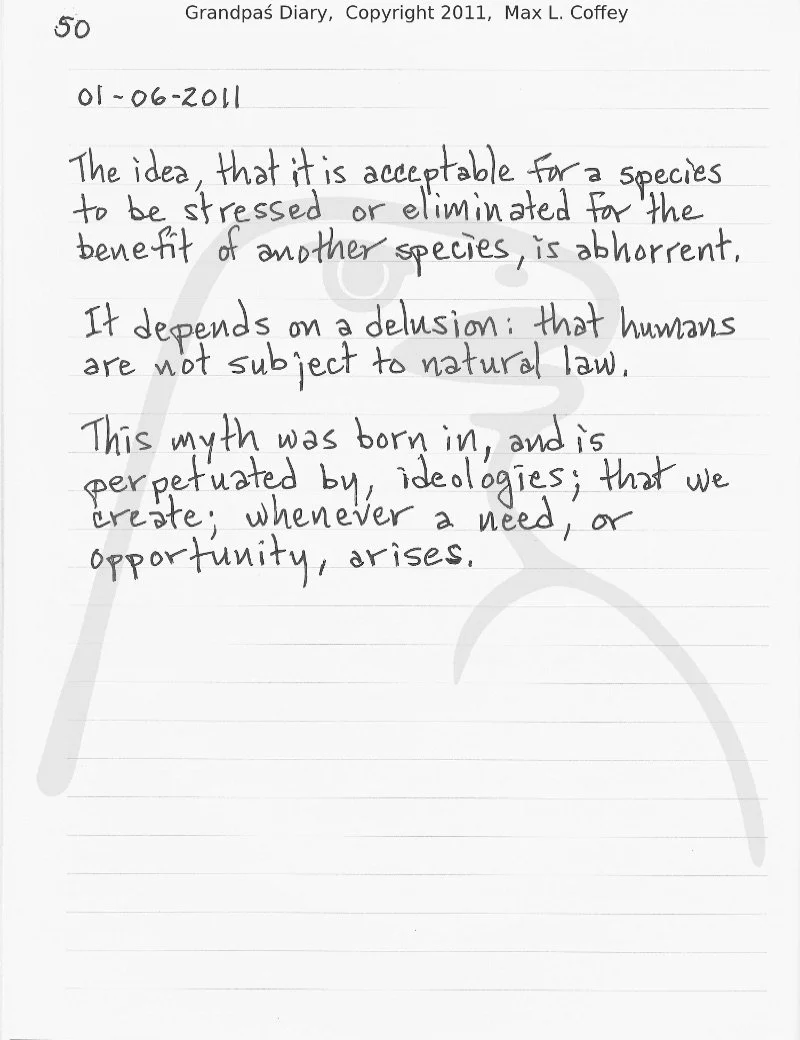 Grandpaś Diary, Copyright 2011, Max L. Coffey
50
01-06-2011
The idea, that it is acceptable for a species
to be stressed or eliminated for the
benefit of another species, is abhorrent.
It depends on a delusion: that humans
are not subject to natural law.
This myth was born in, and is
perpetuated by, ideologies; that we
create; whenever a need, or
opportunity, arises.